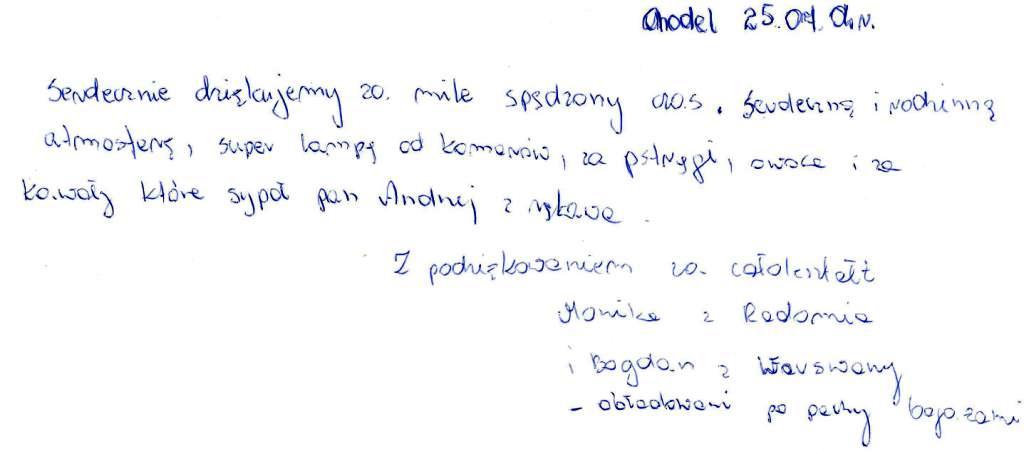 Chodel 25.04.b.r.
Serdecznie dziękujemy za mile spędzony czas. Serdeczną i rodzinną
atmosferę, super lampę od komarów, za pstrągi, owoce i za
kawały które sypał pan Andrzej z rękawa.
Z podziękowaniem za całokształt
Monika z Radomia
i Bogdan z Warszawy
- obładowani po pachy bagażami